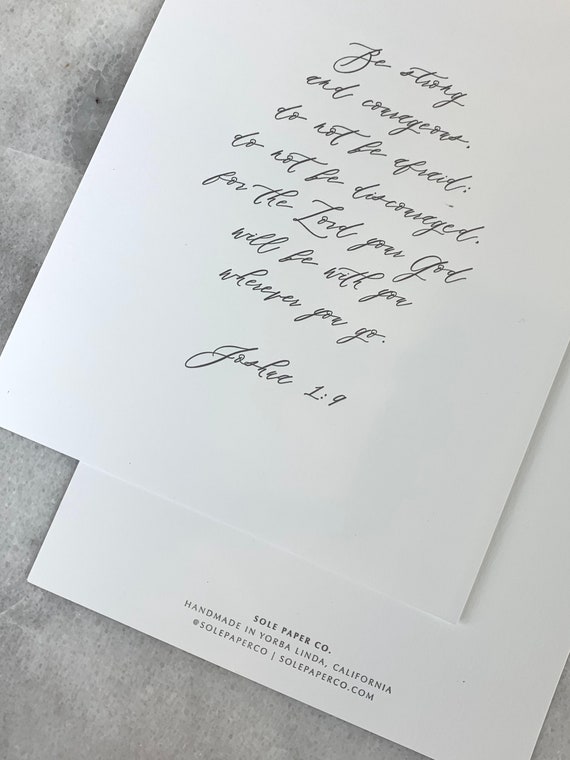 Be strong
and courageous.
do not be afraid;
do not be discouraged.
for the Lord your God
will be with you
wherever you go.
Joshua 1:9
SOLE PAPER CO.
HANDMADE IN YORBA LINDA, CALIFORNIA
@SOLEPAPERCO | SOLEPAPERCO.COM